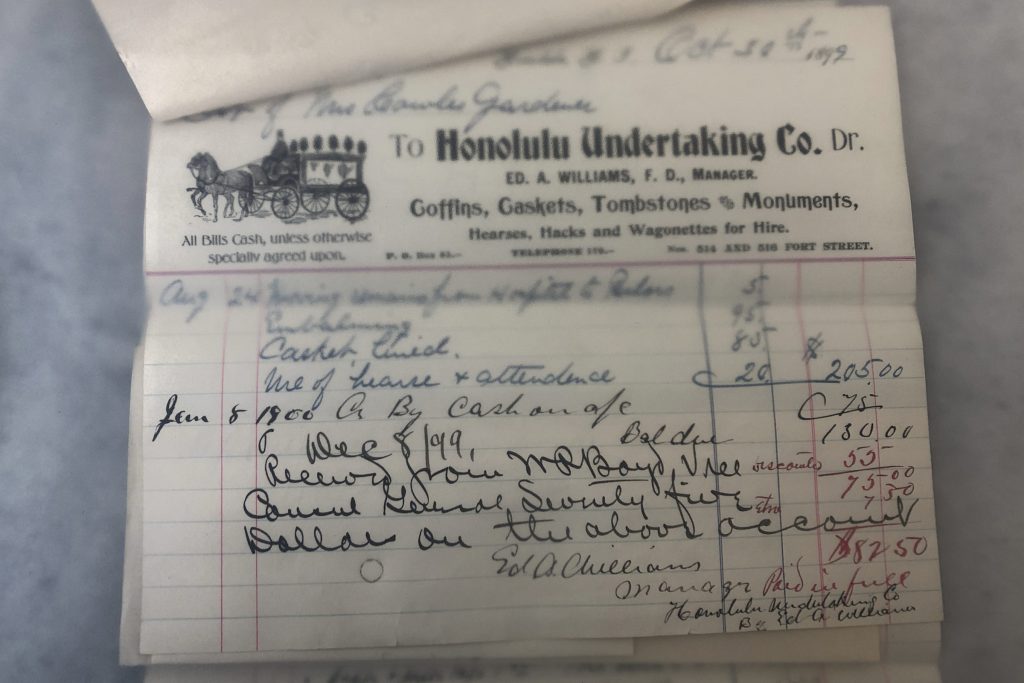 Oct 30th 1899
of Mrs Gardener
To Honolulu Undertaking Co. Dr.
ED. A. WILLIAMS, F. D., MANAGER.
Coffins, Caskets, Tombstones & Monuments,
Hearses, Hacks and Wagonettes for Hire.
All Bills Cash, unless otherwise
specially agreed upon.
P. O. Box TELEPHONE 179.— Nos. 514 AND 516 FORT STREET.
Aug 24 Moving remains from Hospital to Parlors 5
Embalming 95
Casket, lined. 85
Use of hearse & attendence 20 $205.00
Jan 8 1900 Cr By Cash on a/c 75
Bal due 130.00
Dec 8/99,
Received from W P Boyd, Vice discounts 55
75.00
Consul General Seventy five 7 50
Dollars on the above account
$82 50
Ed A Williams
Manager Paid in full
Honolulu Undertaking Co
By Ed A Williams